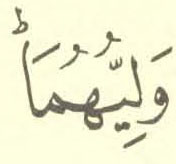 وَلِيُّهُمَاؕ